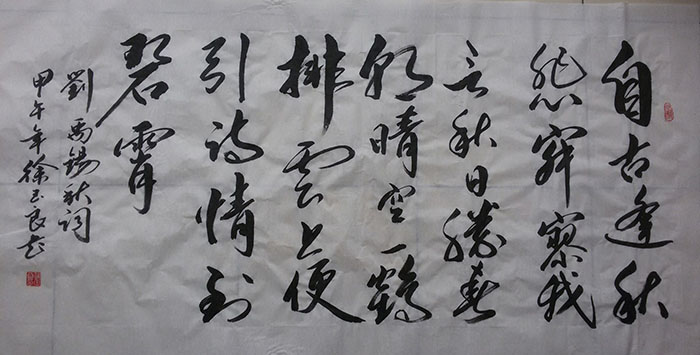 自古逢秋
悲寂寥我
言秋日勝春
朝晴空一鶴
排雲上便
引詩情到
碧霄
劉禹錫秋詞
甲午年徐玉良书